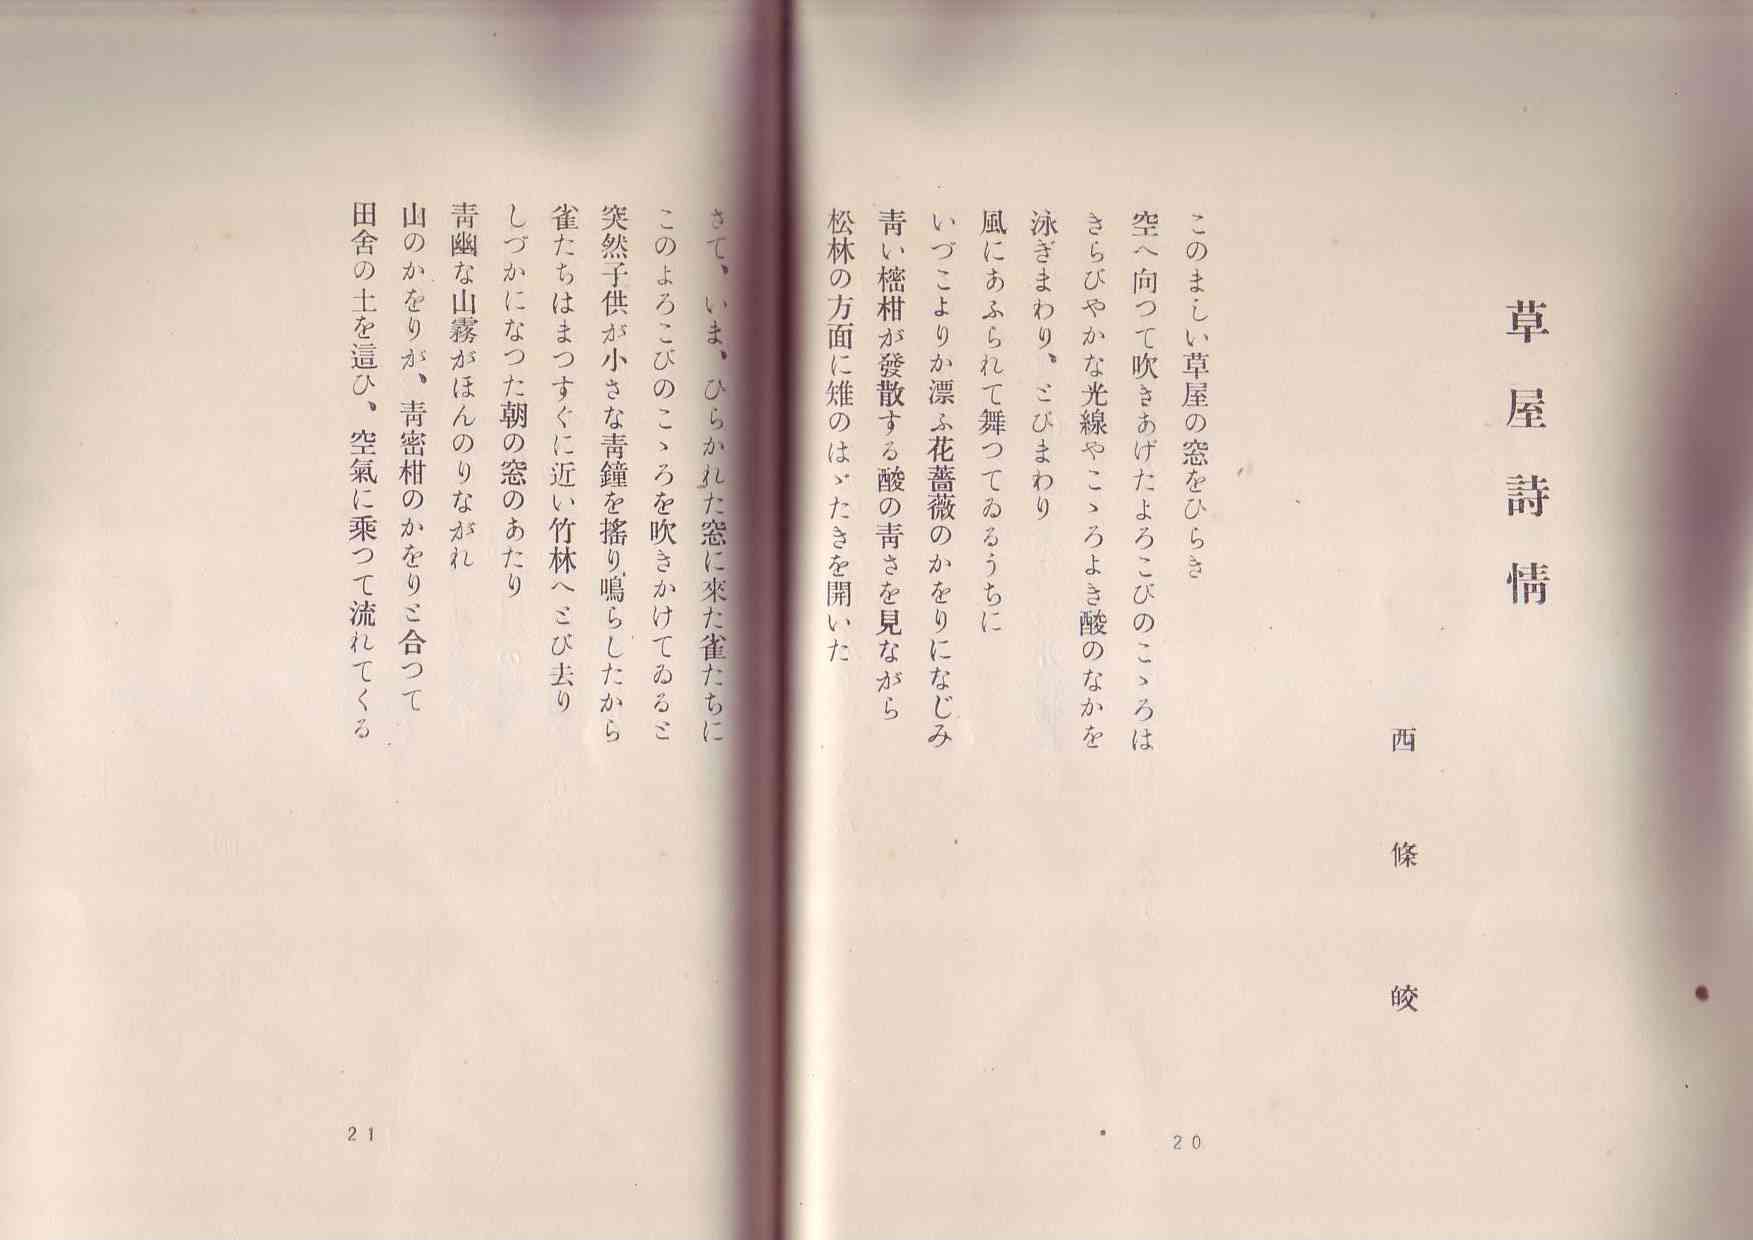 草屋詩情
西條皎
このましい草屋の窓をひらき
空へ向つて吹きあげたよろこびのこゝろは
きらびやかな光線やこゝろよき酸のなかを
泳ぎまわり、とびまわり
風にあふられて舞つてゐるうちに
いづこよりか漂ふ花薔薇のかをりになじみ
靑い樒柑が發散する酸の靑さを見ながら
松林の方面に雉のはゞたきを開いた
20
さて、いま、ひらかれた窓に來た雀たちに
このよろこびのこゝろを吹きかけてゐると
突然子供が小さな靑鐘を搖り鳴らしたから
雀たちはまつすぐに近い竹林へとび去り
しづかになつた朝の窓のあたり
靑幽な山霧がほんのりながれ
山のかをりが、靑密柑のかをりと合つて
田舍の土を這ひ、空氣に乘つて流れてくる
21